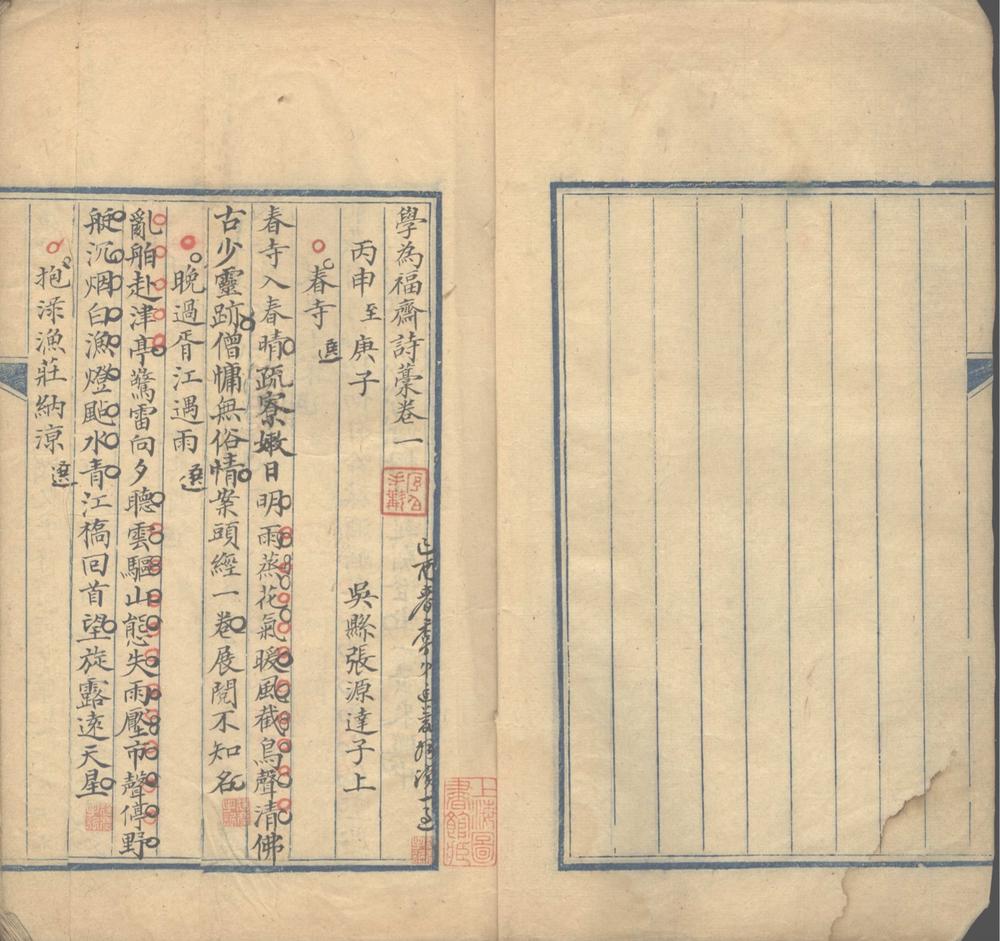 學為福齋詩藁卷一
丙申至庚子 吳縣張源達子上
春寺 選
春寺入春晴疏寮嫩日明雨蒸花氣暖風截鳥聲清佛
古少靈跡僧慵無俗情案頭經一卷展閱不知名
晚過胥江遇雨 選
亂舶赴津亭驚雷向夕聽雲驅山態失雨壓市聲停野
艇沉烟白漁燈颭水青江橋回首望旋露遠天星
抱淥漁莊納涼 選
上海圖
書館藏